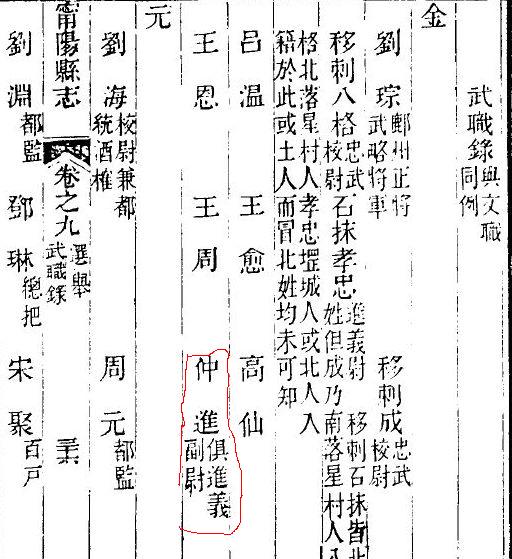 武職錄與文職同例
金
劉琮鄜州正將武略將軍 移刺成忠武校尉
移刺八格忠武校尉 石抹孝忠進義尉 移刺石抹皆北姓但成乃南落星村人八
格北落星村人孝忠堽城人或北人入
籍於此或土人而冒北姓均未可知
呂溫 王愈 高仙
王恩 王周 仲進俱進義副尉
元
劉海校尉兼都統酒榷 周元都監
甯陽縣志 卷之九 選舉 武職錄
劉淵都監 鄧琳總把 宋聚百戶